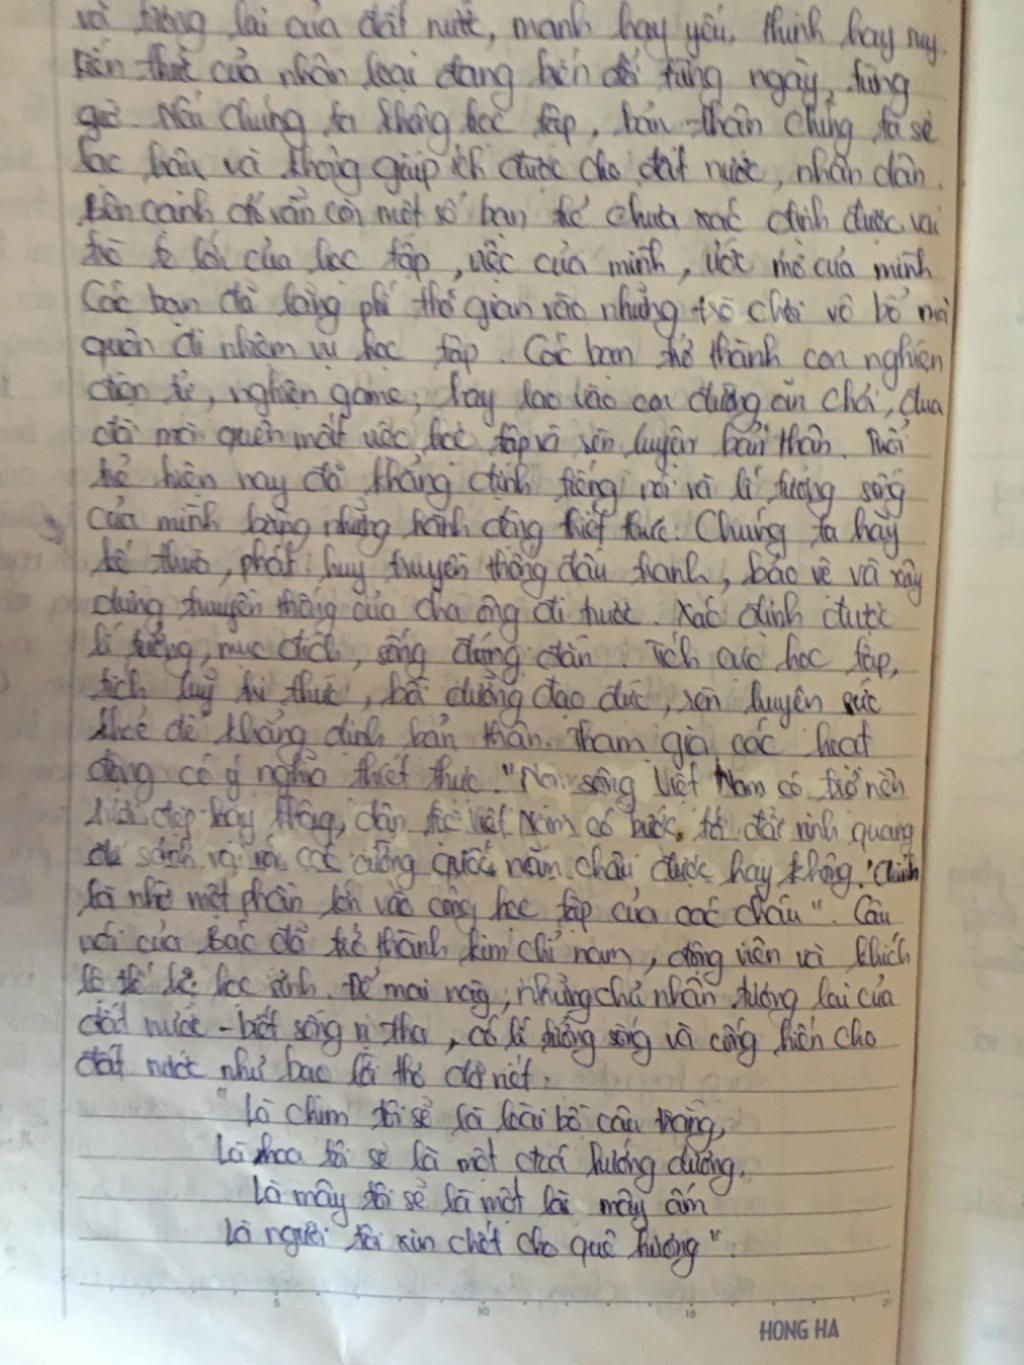 và tương lai của đất nước, mạnh hay yếu, thịnh hay suy.
Kiến thức của nhân loại đang biến đổi từng ngày, từng
giờ. Nếu chúng ta không học tập, bản thân chúng ta sẽ
lạc hậu và không giúp ích được cho đất nước, nhân dân.
Bên cạnh đó vẫn còn một số bạn trẻ chưa xác định được vai
trò to lớn của học tập, việc của mình, ước mơ của mình
Các bạn đã lãng phí thời gian vào những trò chơi vô bổ mà
quên đi nhiệm vụ học tập. Các bạn trở thành con nghiện
điện tử, nghiện game, hay lao vào con đường ăn chơi, đua
đòi mà quên mất việc học tập và rèn luyện bản thân. Tuổi
trẻ hiện nay đã khẳng định tiếng nói và lí tưởng sống
của mình bằng những hành động thiết thực. Chúng ta hãy
kế thừa, phát huy truyền thống đấu tranh, bảo vệ và xây
dựng truyền thống của cha ông đi trước. Xác định được
lí tưởng, mục đích, sống đúng đắn. Tích cực học tập,
tích luỹ tri thức, bồi dưỡng đạo đức, rèn luyện sức
khoẻ để khẳng định bản thân. Tham gia các hoạt
động có ý nghĩa thiết thực. "Non sông Việt Nam có trở nên
tươi đẹp hay không, dân tộc Việt Nam có bước tới đài vinh quang
để sánh vai với các cường quốc năm châu được hay không. Chính
là nhờ một phần lớn vào công học tập của các cháu". Câu
nói của Bác đã trở thành kim chỉ nam, động viên và khích
lệ thế hệ học sinh. Để mai này, những chủ nhân tương lai của
đất nước - biết sống vị tha, có lí tưởng sống và cống hiến cho
đất nước như bao lời thơ
"Là chim tôi sẽ là loài bồ câu trắng,
Là hoa tôi sẽ là một đoá hướng dương.
Là mây tôi sẽ là một làn mây ấm
Là người tôi xin chết cho quê hương".
5 10 15 20
HONG HA